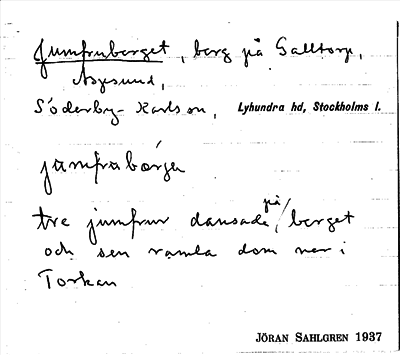 Jumfruberget, berg på Salltorp,
Aspsund,
Söderby-Karls sn, Lyhundra hd, Stockholms l.
jumfrubærge
tre jumfrur dansade på berget
och sen ramla dom ner i
Torkan
JÖRAN SAHLGREN 1937